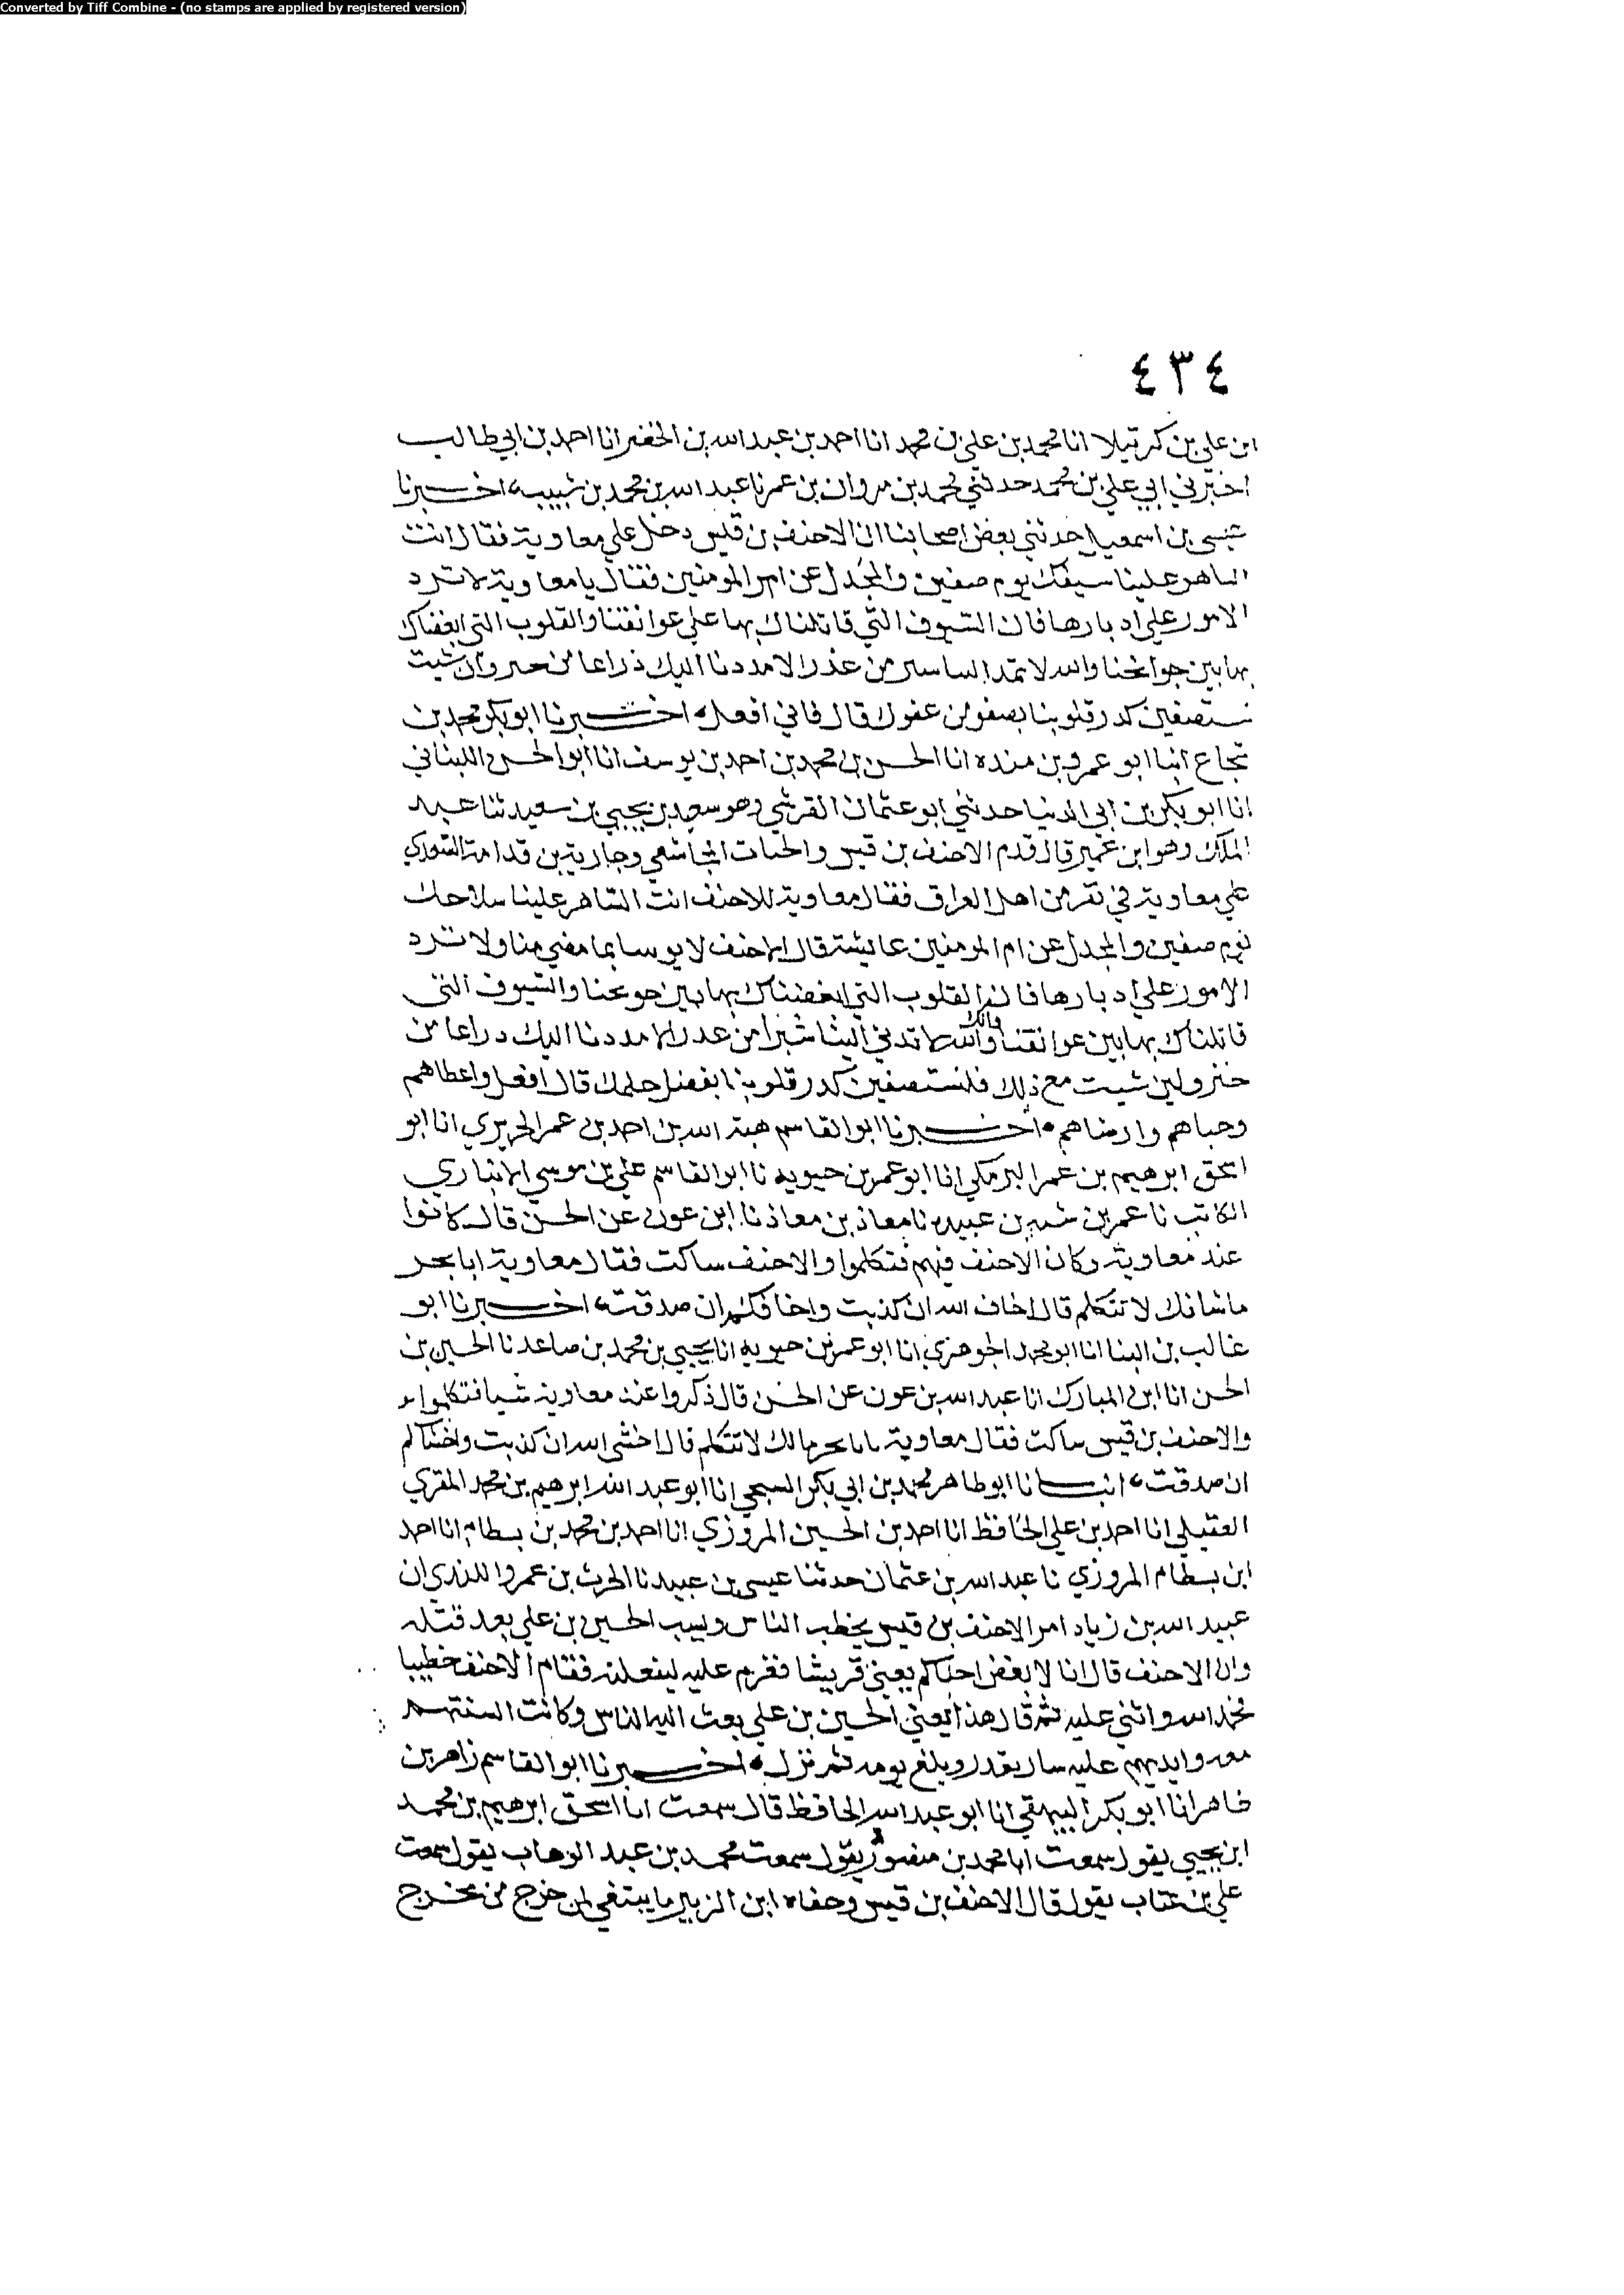 Converted by Tiff Combine - (no stamps are applied by registered version)
٤٣٤
ابن علي بن كرتيلا انا محمد بن علي بن محمد انا احمد بن عبد الله بن الخضر انا احمد بن ابي طالب
اخبرني ابي علي بن محمد حدثني محمد بن مروان بن عمر نا عبد الله بن محمد بن شبيب اخبرنا
عيسى بن اسمعيل حدثني بعض اصحابنا ان الاحنف بن قيس دخل علي معاوية فقال انت
الشاهر علينا سيفك يوم صفين والمخذل عن ام المومنين فقال يا معاوية لا ترد
الامور علي ادبارها فان السيوف التي قاتلناك بها علي عواتقنا والقلوب التي ابغضناك
بها بين جوانحنا والله لا تمد الينا من غدر الا مددنا اليك ذراعا من ختر وان شيت
نستصفين كدر قلوبنا بصفو من عفوك قال فاني افعل اخبرنا ابو بكر محمد بن
شجاع انبا ابو عمرو بن منده انا الحسن بن محمد بن احمد بن يوسف انا ابو الحسن اللبناني
انا ابو بكر بن ابي الدنيا حدثني ابو عثمان القرشي وهو سعيد بن يحيي بن سعيد ثنا عبد
الملك وهو ابن عمير قال قدم الاحنف بن قيس والحتات المجاشعي وجارية بن قدامة السعدي
علي معاوية في نفر من اهل العراق فقال معاوية للاحنف انت الشاهر علينا سلاحك
يوم صفين والمخذل عن ام المومنين عايشة قال الاحنف لا بما مضي منا ولا ترد
الامور علي ادبارها فان القلوب التي ابغضناك بها بين جوانحنا والسيوف التي
قاتلناك بها بين عواتقنا وانك والله لا تدني الينا شبرا من غدر الا مددنا اليك ذراعا من
ختر ولين شيت مع ذلك فلتستصفين كدر قلوبنا بفضل حلمك قال افعل واعطاهم
وحباهم وارضاهم اخبرنا ابو القاسم هبة الله بن احمد بن عمر الحريري انا ابو
اسحق ابرهيم بن عمر البرمكي انا ابو عمر بن حيويه نا ابو القاسم علي بن موسي الانباري
الكاتب نا عمر بن شبه بن عبيده نا معاذ بن معاذ نا ابن عون عن الحسن قال كانوا
عند معاوية وكان الاحنف فيهم فتكلموا والاحنف ساكت فقال معاوية ابا بحر
ما شانك لا تتكلم قال اخاف الله ان كذبت واخافكم ان صدقت اخبرنا ابو
غالب بن البنا انا ابو محمد الجوهري انا ابو عمر بن حيويه انا يحيي بن محمد بن صاعد نا الحسين بن
الحسن انا ابن المبارك انا عبد الله بن عون عن الحسن قال ذكروا عند معاوية شيا فتكلموا
والاحنف بن قيس ساكت فقال معاوية يابا بحر مالك لا تتكلم قال اخشى الله ان كذبت واخشاكم
ان صدقت انبانا ابو طاهر محمد بن ابي بكر السبحي انا ابو عبد الله ابرهيم بن محمد المقري
العقيلي انا احمد بن علي الحافظ انا احمد بن الحسين المروزي انا احمد بن محمد بن بسطام انا احمد
ابن بسطام المروزي نا عبد الله بن عثمان حدثنا عيسى بن عبيد نا الحرث بن عمرو ان
عبيد الله بن زياد امر الاحنف بن قيس يخطب الناس ويسب الحسين بن علي بعد قتله
وان الاحنف قال انا لا بغض احياكم يعني قريشا فعزم عليه ليفعلنه فقام الاحنف خطيبا
فحمد الله واثني عليه ثم قال هذا يعني الحسين بن علي بعث اليه الناس وكانت السنتهم
معه وايديهم عليه سار بقدر وبلغ يومه ثم نزل اخبرنا ابو القاسم زاهر بن
طاهر انا ابو بكر البيهقي انا ابو عبد الله الحافظ قال سمعت ابا اسحق ابرهيم بن محمد
ابن يحيي يقول سمعت ابا محمد بن منصور يقول سمعت محمد بن عبد الوهاب يقول سمعت
علي بن عتاب يقول قال الاحنف بن قيس وجفاه ابن الزبير ما ينبغي لمن خرج من مخرج